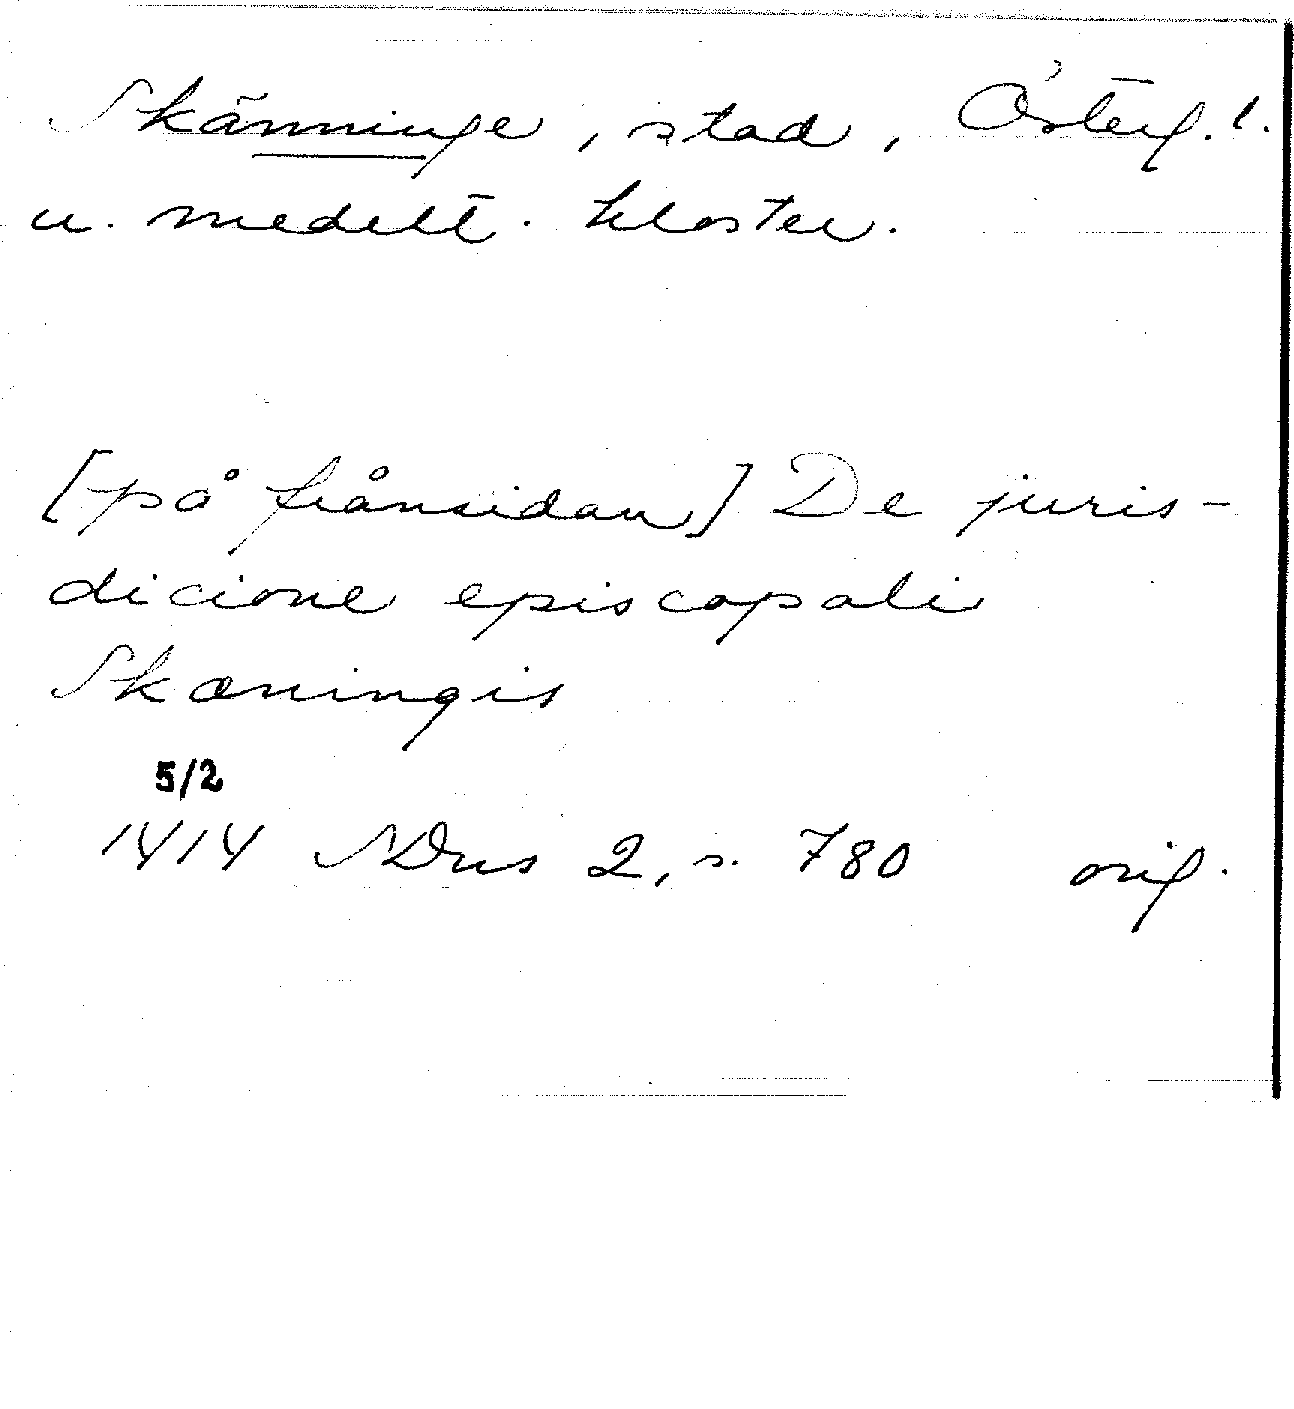 Skänninge, stad, Österg. l.
u. medelt. kloster.
[på frånsidan] De juris-
dicione episcopali
Skæningis
5/2
1414 SDns 2, s. 780 orig.